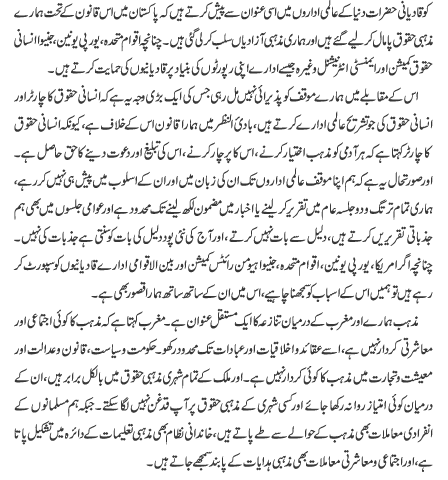 کو قادیانی حضرات دنیا کے عالمی اداروں میں اسی عنوان سے پیش کرتے ہیں کہ پاکستان میں اس قانون کے تحت ہمارے
مذہبی حقوق پامال کر لیے گئے ہیں اور ہماری مذہبی آزادیاں سلب کر لی گئی ہیں۔ چنانچہ اقوام متحدہ، یورپی یونین، جنیوا انسانی
حقوق کمیشن اور ایمنسٹی انٹرنیشنل وغیرہ جیسے ادارے اپنی رپورٹوں کی بنیاد پر قادیانیوں کی حمایت کرتے ہیں۔
اس کے مقابلے میں ہمارے موقف کو پذیرائی نہیں مل رہی جس کی ایک بڑی وجہ یہ ہے کہ انسانی حقوق کا چارٹر اور
انسانی حقوق کی جو تشریح عالمی ادارے کرتے ہیں، بادی النظر میں ہمارا قانون اس کے خلاف ہے، کیونکہ انسانی حقوق
کا چارٹر کہتا ہے کہ ہر آدمی کو مذہب اختیار کرنے، اس کا پرچار کرنے، اس کی تبلیغ اور دعوت دینے کا حق حاصل ہے۔
اور صورتحال یہ ہے کہ ہم اپنا موقف عالمی اداروں تک ان کی زبان میں اور ان کے اسلوب میں پیش ہی نہیں کر رہے،
ہماری تمام تر تگ و دو جلسہ عام میں تقریر کر لینے یا اخبار میں مضمون لکھ لینے تک محدود ہے اور عوامی جلسوں میں بھی ہم
جذباتی تقریریں کرتے ہیں، دلیل سے بات نہیں کرتے، اور آج کی نئی پود دلیل کی بات کو سنتی ہے جذبات کی نہیں۔
چنانچہ اگر امریکا، یورپی یونین، اقوام متحدہ، جنیوا ہیومن رائٹس کمیشن اور بین الاقوامی ادارے قادیانیوں کو سپورٹ کر
رہے ہیں تو ہمیں اس کے اسباب کو سمجھنا چاہیے، اس میں ان کے ساتھ ساتھ ہمارا قصور بھی ہے۔
مذہب ہمارے اور مغرب کے درمیان تنازعہ کا ایک مستقل عنوان ہے۔ مغرب کہتا ہے کہ مذہب کا کوئی اجتماعی اور
معاشرتی کردار نہیں ہے، اسے عقائد و اخلاقیات اور عبادات تک محدود رکھو۔ حکومت و سیاست، قانون و عدالت اور
معیشت و تجارت میں مذہب کا کوئی کردار نہیں ہے۔ اور ملک کے تمام شہری مذہبی حقوق میں بالکل برابر ہیں، ان کے
درمیان کوئی امتیاز روا نہ رکھا جائے اور کسی شہری کے مذہبی حقوق پر آپ قدغن نہیں لگا سکتے۔ جبکہ ہم مسلمانوں کے
انفرادی معاملات بھی مذہب کے حوالے سے طے پاتے ہیں، خاندانی نظام بھی مذہبی تعلیمات کے دائرہ میں تشکیل پاتا
ہے، اور اجتماعی و معاشرتی معاملات بھی مذہبی ہدایات کے پابند سمجھے جاتے ہیں۔